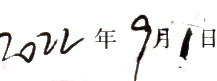 2022年9月1日